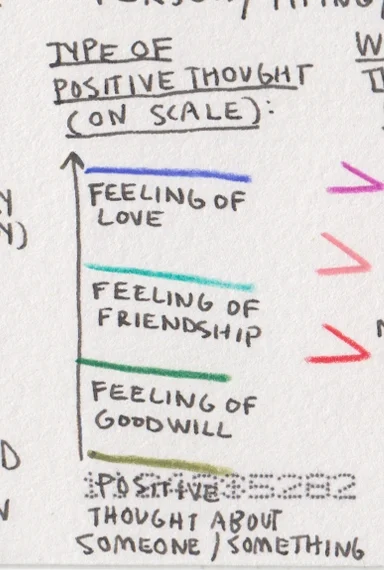 TYPE OF
POSITIVE THOUGHT
(ON SCALE):
FEELING OF
LOVE
FEELING OF
FRIENDSHIP
FEELING OF
GOODWILL
POSITIVE
THOUGHT ABOUT
SOMEONE / SOMETHING